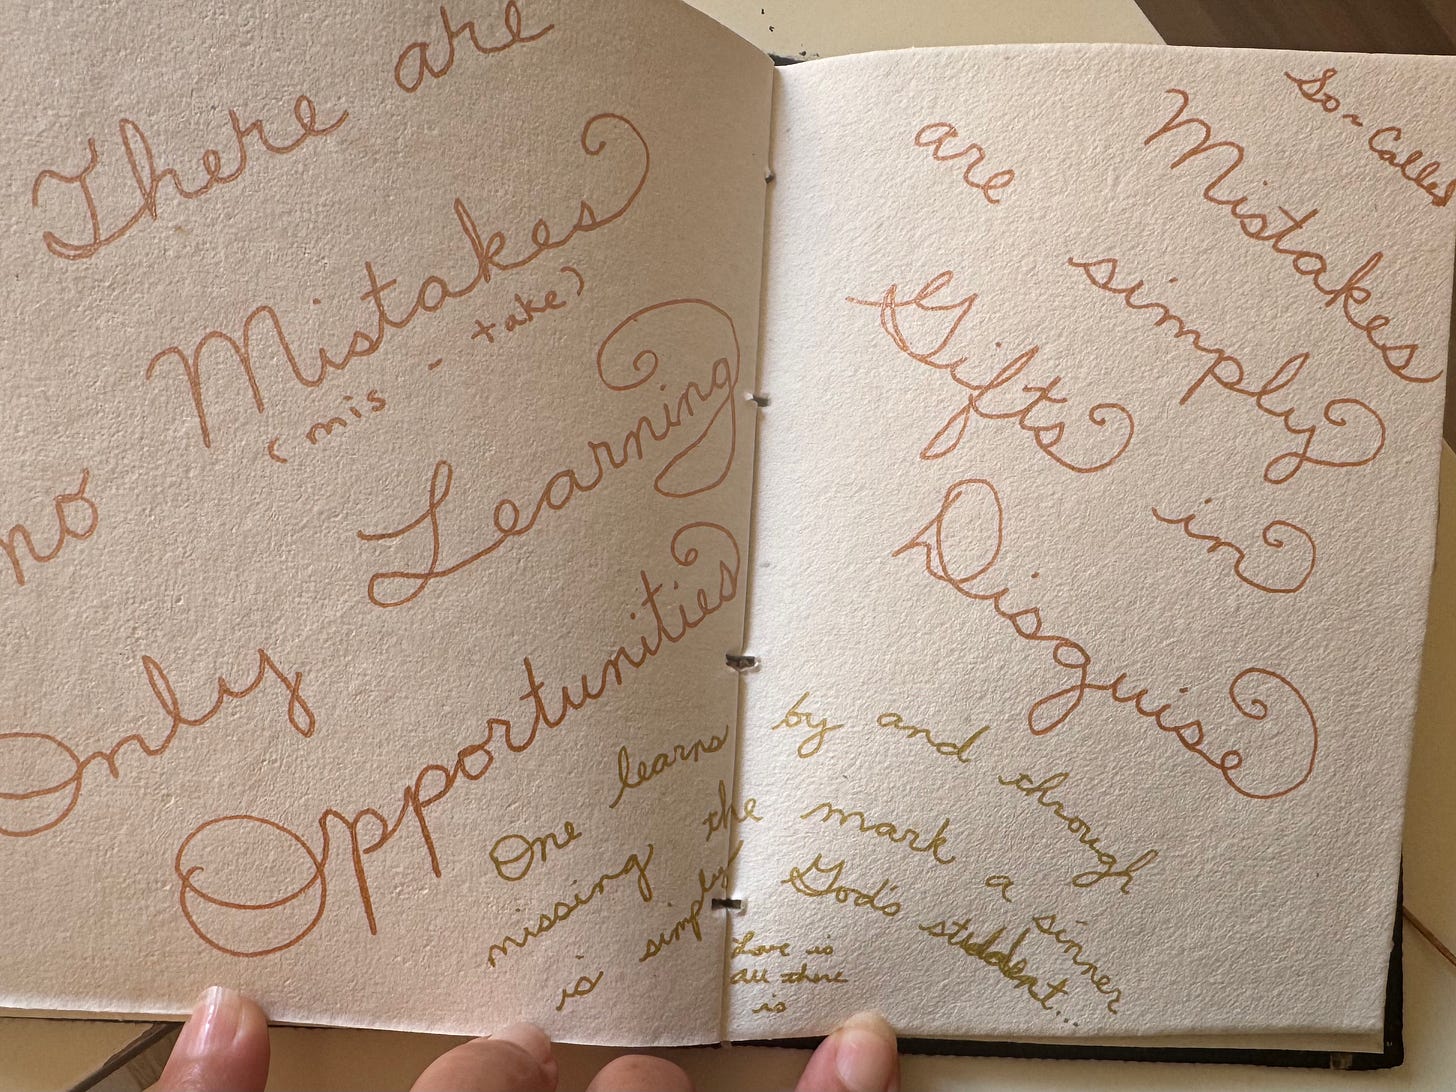 There are
no Mistakes
(mis - take)
Only Learning
Opportunities
So~Called
Mistakes
are simply
Gifts in
Disguise
One learns by and through
missing the mark a sinner
is simply God's student...
Love is
All there
is